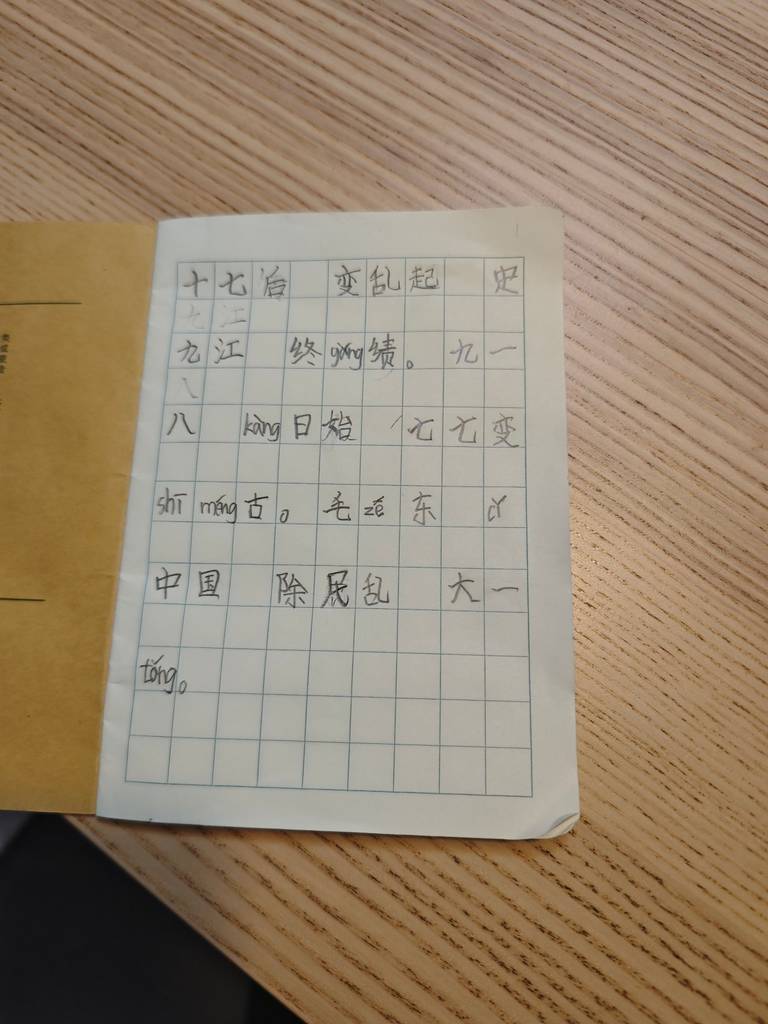 十七后 变乱起 史
九江
九江 终gòng绩。九一
八
八 kàng日始 七七变
shī méng古。毛zé东 cǐ
中国 除民乱 大一
tǒng。